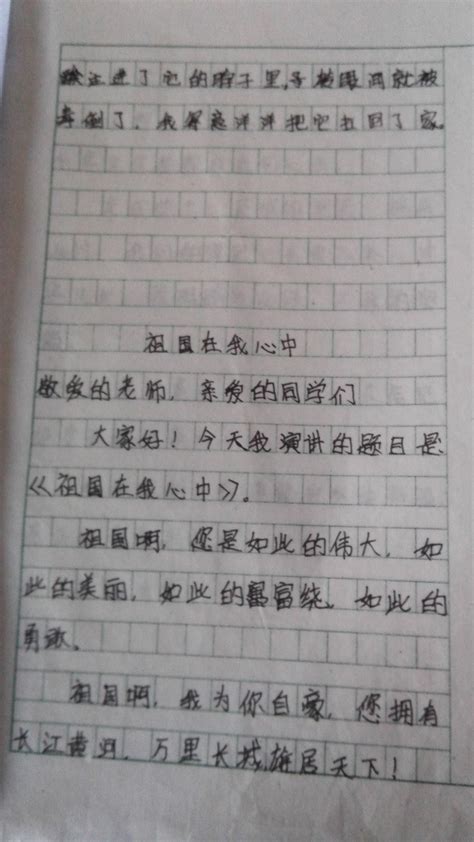 进了它的脖子里,手被眼间就被
倒了,我得意洋洋把它拉回了家。
祖国在我心中
敬爱的老师,亲爱的同学们
大家好!今天我演讲的题目是
《祖国在我心中》。
祖国啊,您是如此的伟大,如
此的美丽,如此的富饶,如此的
勇敢。
祖国啊,我为你自豪,您拥有
长江黄河,万里长城雄居天下!